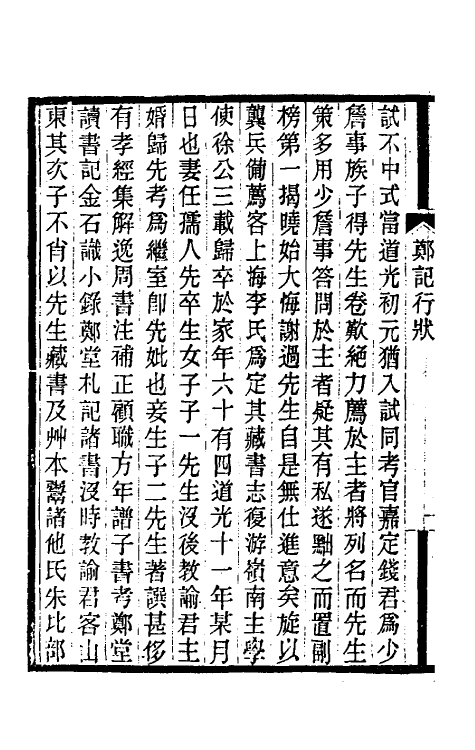 鄭記行狀
試不中式當道光初元猶入試同考官嘉定錢君爲少
詹事族子得先生卷歎絕力薦於主者將列名而先生
策多用少詹事答問於主者疑其有私遂黜之而置副
榜第一揭曉始大悔謝過先生自是無仕進意矣旋以
龔兵備薦客上海李氏爲定其藏書志復游嶺南主學
使徐公三載歸卒於家年六十有四道光十一年某月
日也妻任孺人先卒生女子子一先生沒後教諭君主
婚歸先考爲繼室卽先妣也妾生子二先生著譔甚侈
有孝經集解逸周書注補正顧職方年譜子書考鄭堂
讀書記金石識小錄鄭堂札記諸書沒時教諭君客山
東其次子不肖以先生藏書及艸本鬻諸他氏朱比部